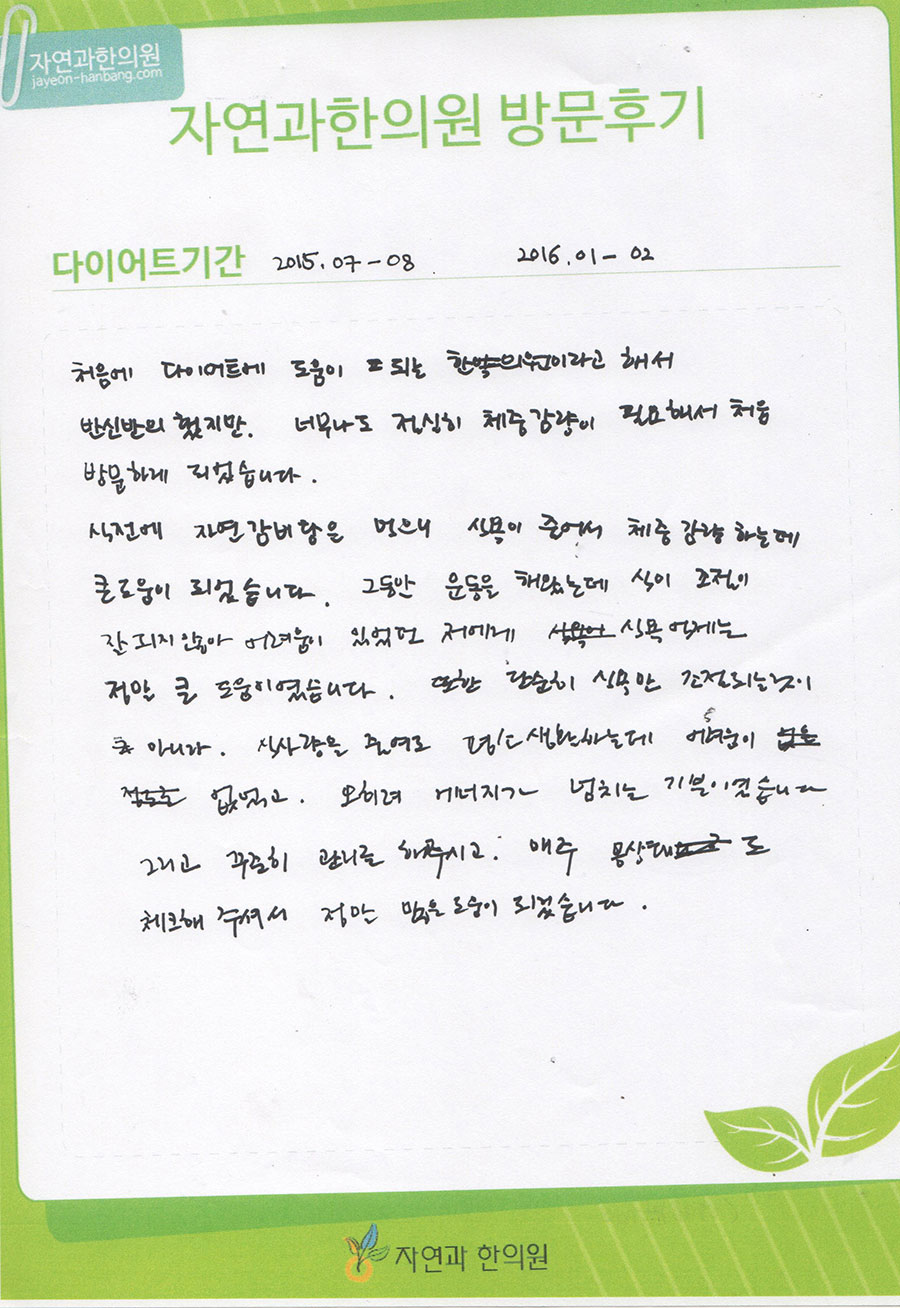 자연과한의원
jayeon-hanbang.com
자연과한의원 방문후기
다이어트기간 2015.07-08 2016.01-02
처음에 다이어트에 도움이 되는 한약의원이라고 해서
반신반의 했지만. 너무나도 절실히 체중감량이 필요해서 처음
방문하게 되었습니다.
식전에 자연감비탕을 먹으니 식욕이 줄어서 체중 감량 하는데
큰도움이 되었습니다. 그동안 운동을 해왔는데 식이 조절이
잘 되지 않아 어려움이 있었던 저에게 식욕억제는
정말 큰 도움이였습니다. 또한 단순히 식욕만 조절되는것이
아니라. 식사량을 줄여도 평소생활하는데 어려움이
없었고. 오히려 에너지가 넘치는 기분이였습니다
그리고 꾸준히 관리를 해주시고. 매주 몸상태도
체크해 주셔서 정말 많은도움이 되었습니다.
자연과 한의원